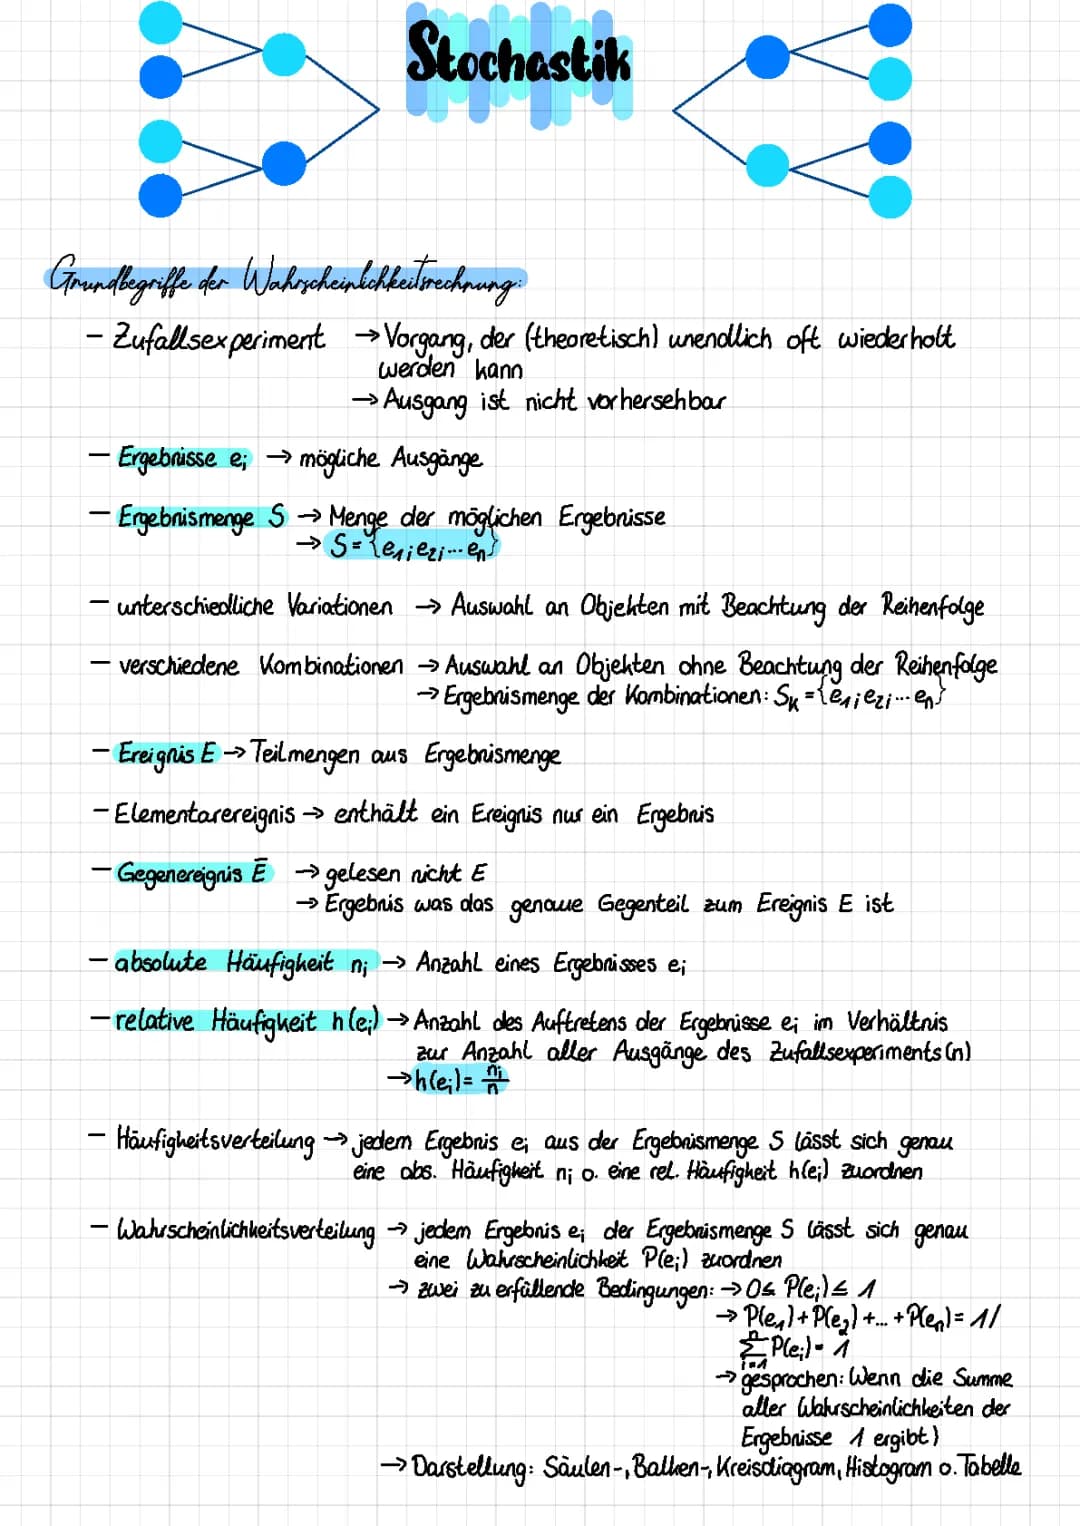 Stochastik
Grundbegriffe der Wahrscheinlichkeitsrechnung:
- Zufallsexperiment → Vorgang, der (theoretisch) unendlich oft wiederholt
werden kann
→ Ausgang ist nicht vorhersehbar
- Ergebnisse eᵢ → mögliche Ausgänge
- Ergebnismenge S → Menge der möglichen Ergebnisse
→ S = {e₁; e₂; ... eₙ}
- unterschiedliche Variationen → Auswahl an Objekten mit Beachtung der Reihenfolge
- verschiedene Kombinationen → Auswahl an Objekten ohne Beachtung der Reihenfolge
→ Ergebnismenge der Kombinationen: Sₖ = {e₁; e₂; ... eₙ}
- Ereignis E → Teilmengen aus Ergebnismenge
- Elementarereignis → enthält ein Ereignis nur ein Ergebnis
- Gegenereignis Ē → gelesen nicht E
→ Ergebnis was das genaue Gegenteil zum Ereignis E ist
- absolute Häufigkeit nᵢ → Anzahl eines Ergebnisses eᵢ
- relative Häufigkeit h(eᵢ) → Anzahl des Auftretens der Ergebnisse eᵢ im Verhältnis
zur Anzahl aller Ausgänge des Zufallsexperiments (n)
→ h(eᵢ) = nᵢ/n
- Häufigkeitsverteilung → jedem Ergebnis eᵢ aus der Ergebnismenge S lässt sich genau
eine abs. Häufigkeit nᵢ o. eine rel. Häufigkeit h(eᵢ) zuordnen
- Wahrscheinlichkeitsverteilung → jedem Ergebnis eᵢ der Ergebnismenge S lässt sich genau
eine Wahrscheinlichkeit P(eᵢ) zuordnen
→ zwei zu erfüllende Bedingungen: → 0 ≤ P(eᵢ) ≤ 1
→ P(e₁) + P(e₂) + ... + P(eₙ) = 1 /
n
∑ P(eᵢ) = 1
i=1
→ gesprochen: Wenn die Summe
aller Wahrscheinlichkeiten der
Ergebnisse 1 ergibt)
→ Darstellung: Säulen-, Balken-, Kreisdiagram, Histogram o. Tabelle